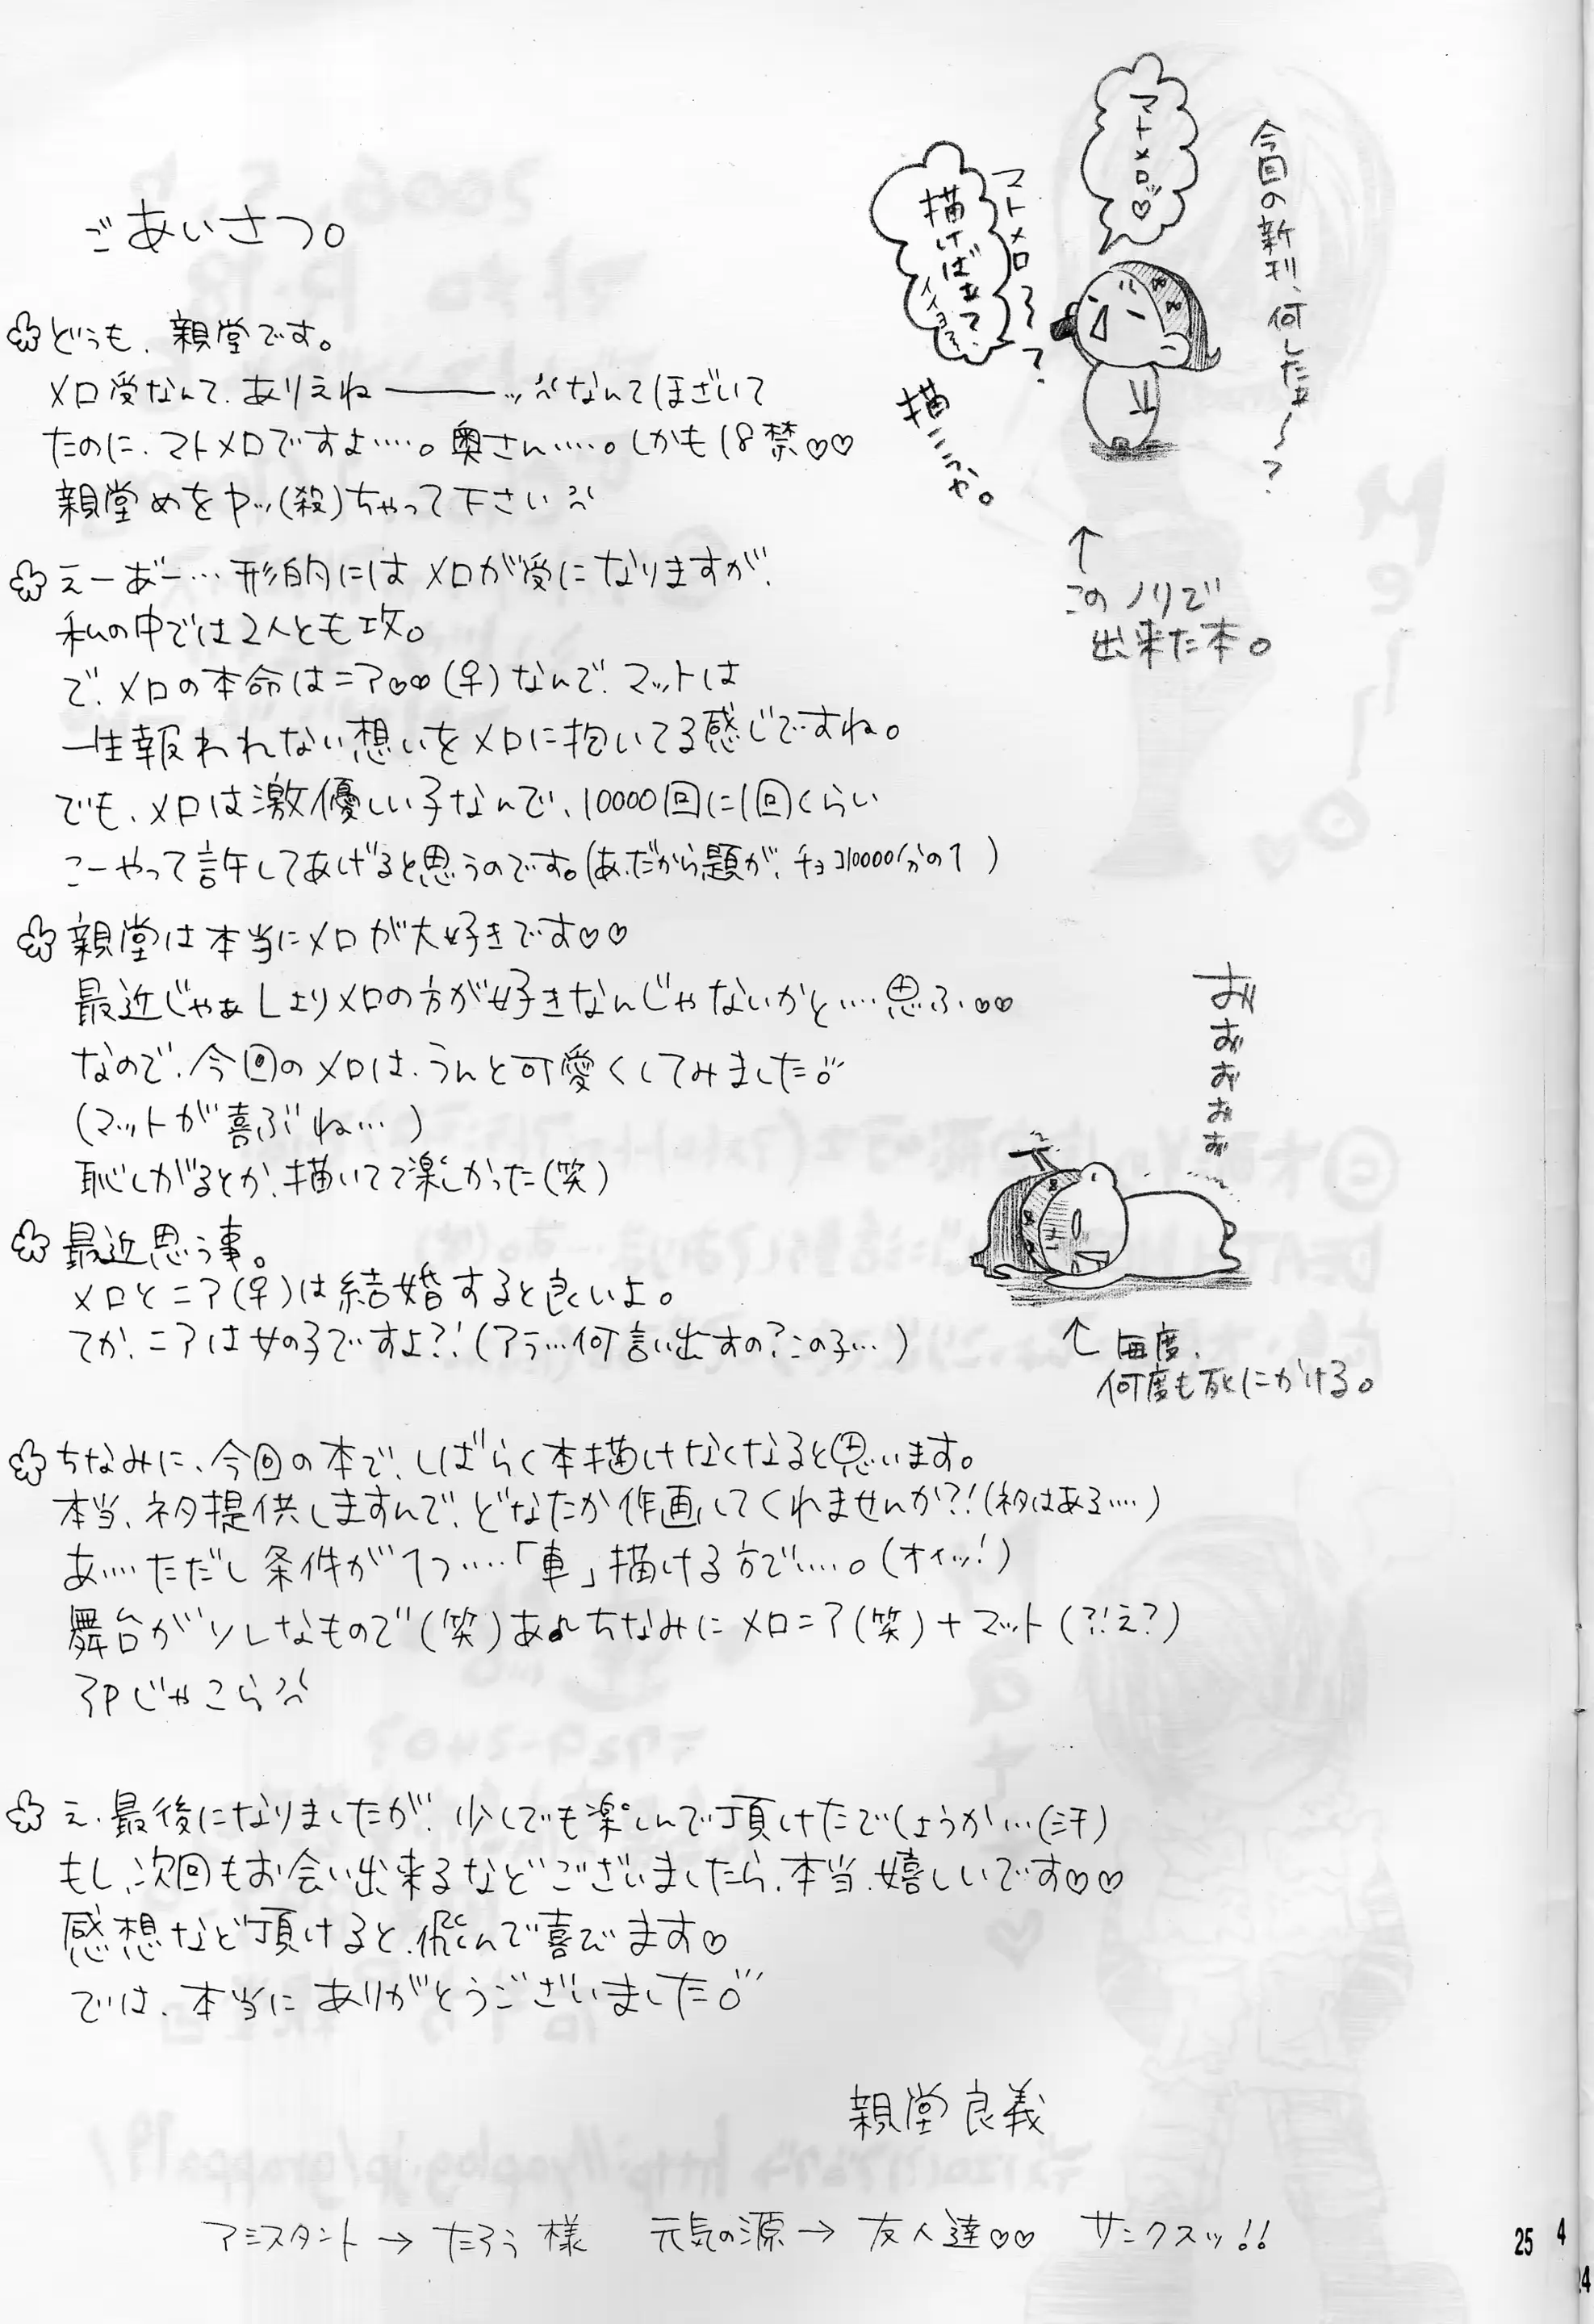 ごあいさつ。
どうも、親堂です。
メロ受なんて、ありえね―――ッ なんてほざいて
たのに、マトメロですよ……。奥さん……。しかも18禁♡♡
親堂めをヤッ(殺)ちゃって下さい
えーあ゛ー…形的にはメロが受になりますが、
私の中では2人とも攻。
で、メロの本命はニア♡♡(♀)なんで、マットは
一生報われない想いをメロに抱いてる感じですね。
でも、メロは激優しい子なんで、10000回に1回くらい
こーやって許してあげると思うのです。(あ、だから題が、チョコ10000分の1)
親堂は本当にメロが大好きです♡♡
最近じゃぁLよりメロの方が好きなんじゃないかと……思ふ、♡♡
なので、今回のメロは、うんと可愛くしてみました
(マットが喜ぶね…)
恥しがるとか、描いてて楽しかった(笑)
最近思う事。
メロとニア(♀)は結婚すると良いよ。
てか、ニアは女の子ですよ?!(アラ…何言い出すの?この子…)
ちなみに、今回の本で、しばらく本描けなくなると思います。
本当、ネタ提供しますんで、どなたか作画してくれませんか?!(ネタはある……)
あ……ただし条件が1つ……「車」描ける方で……。(オイッ!)
舞台がソレなもので(笑)あ♪ちなみにメロニア(笑)+マット(?!え?)
3Pじゃこら
え、最後になりましたが、少しでも楽しんで頂けたでしょうか…(汗)
もし、次回もお会い出来るなどございましたら、本当、嬉しいです♡♡
感想など頂けると、飛んで喜びます♡
では、本当にありがとうございました
親堂良義
アシスタント→たろう様 元気の源→友人達♡♡ サンクスッ!!
今回の新刊、何した～?
マトメロッ♡
マトメロ～?
描けば
描こうや。
↑
このノリで
出来た本。
おぉぉぉぉ
↑毎度、
何度も死にかける。
25
4
24